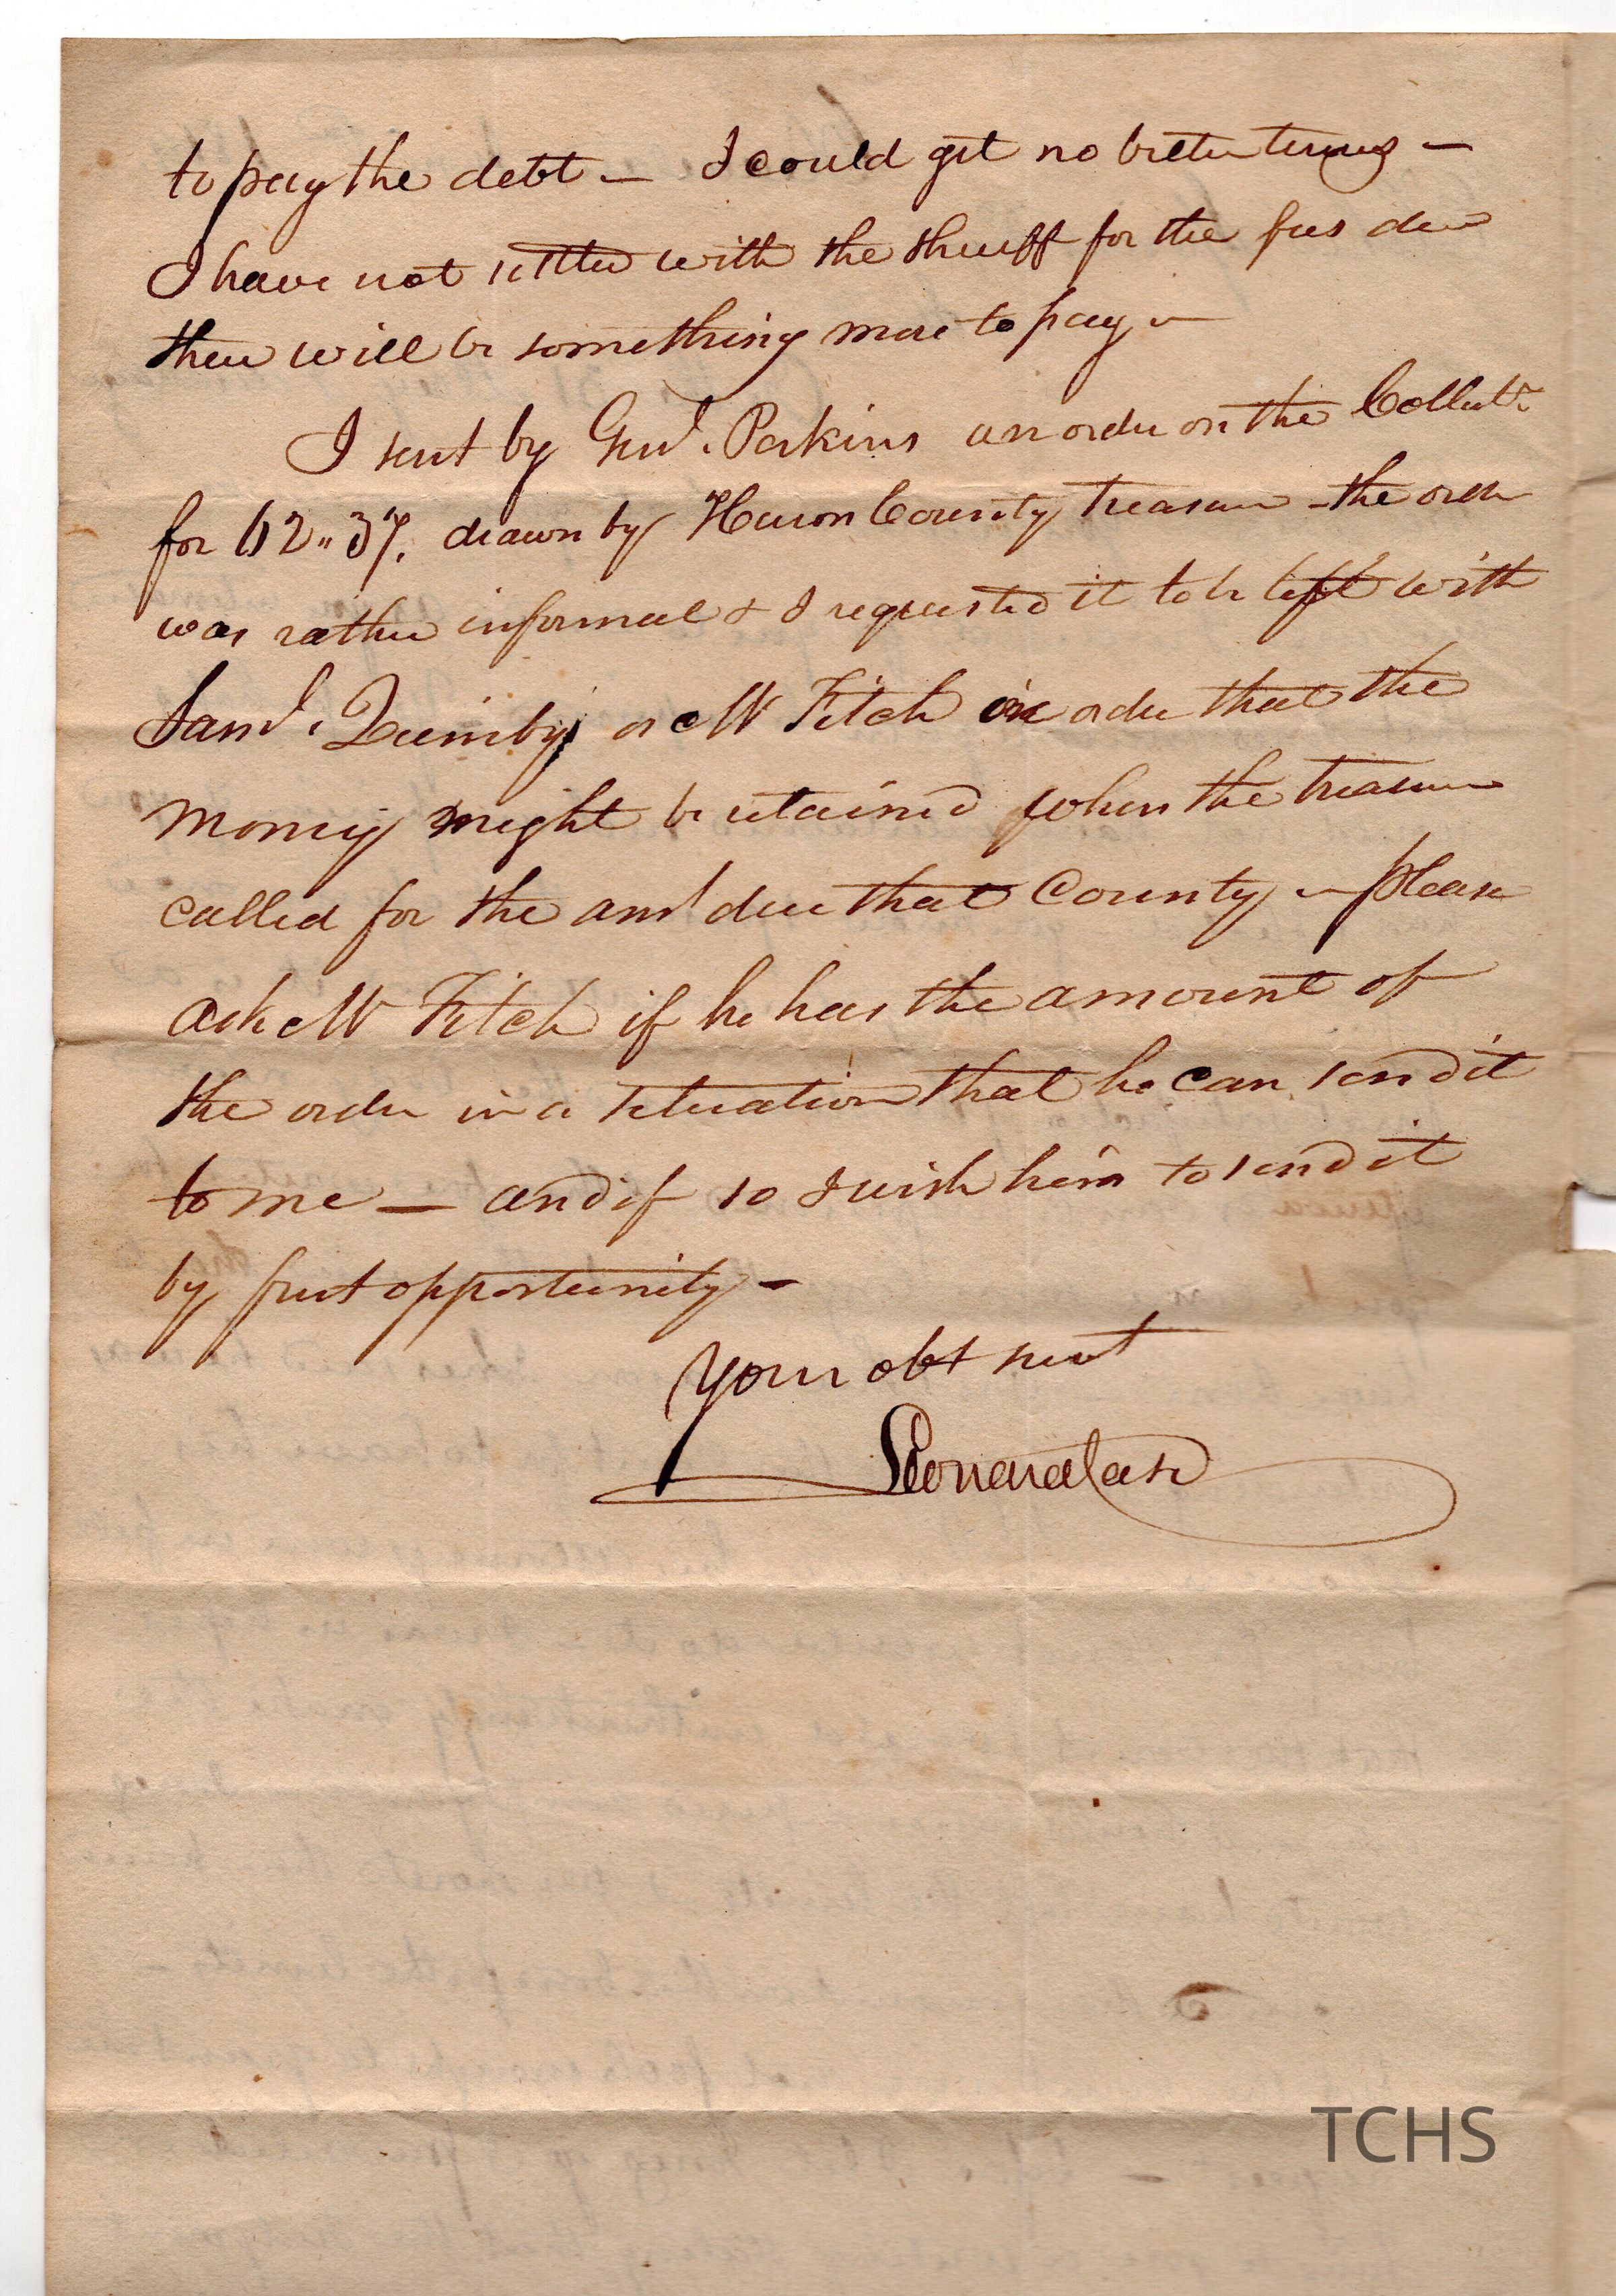 to pay the debt — I could get no better terms —
I have not settled with the Sheriff for the fees due
there will be something more to pay —
I sent by Genl. Perkins an order on the Collectr
for 62"37. drawn by Huron County Treasurer — the order
was rather informal & I requested it to be left with
Saml. Quinby or Mr Fitch in order that the
money might be retained when the treasurer
called for the amt due that County — please
ask Mr Fitch if he has the amount of
the order in a situation that he can send it
to me — and if so I wish him to send it
by first opportunity —
Your obt servt
Leonard Case
TCHS